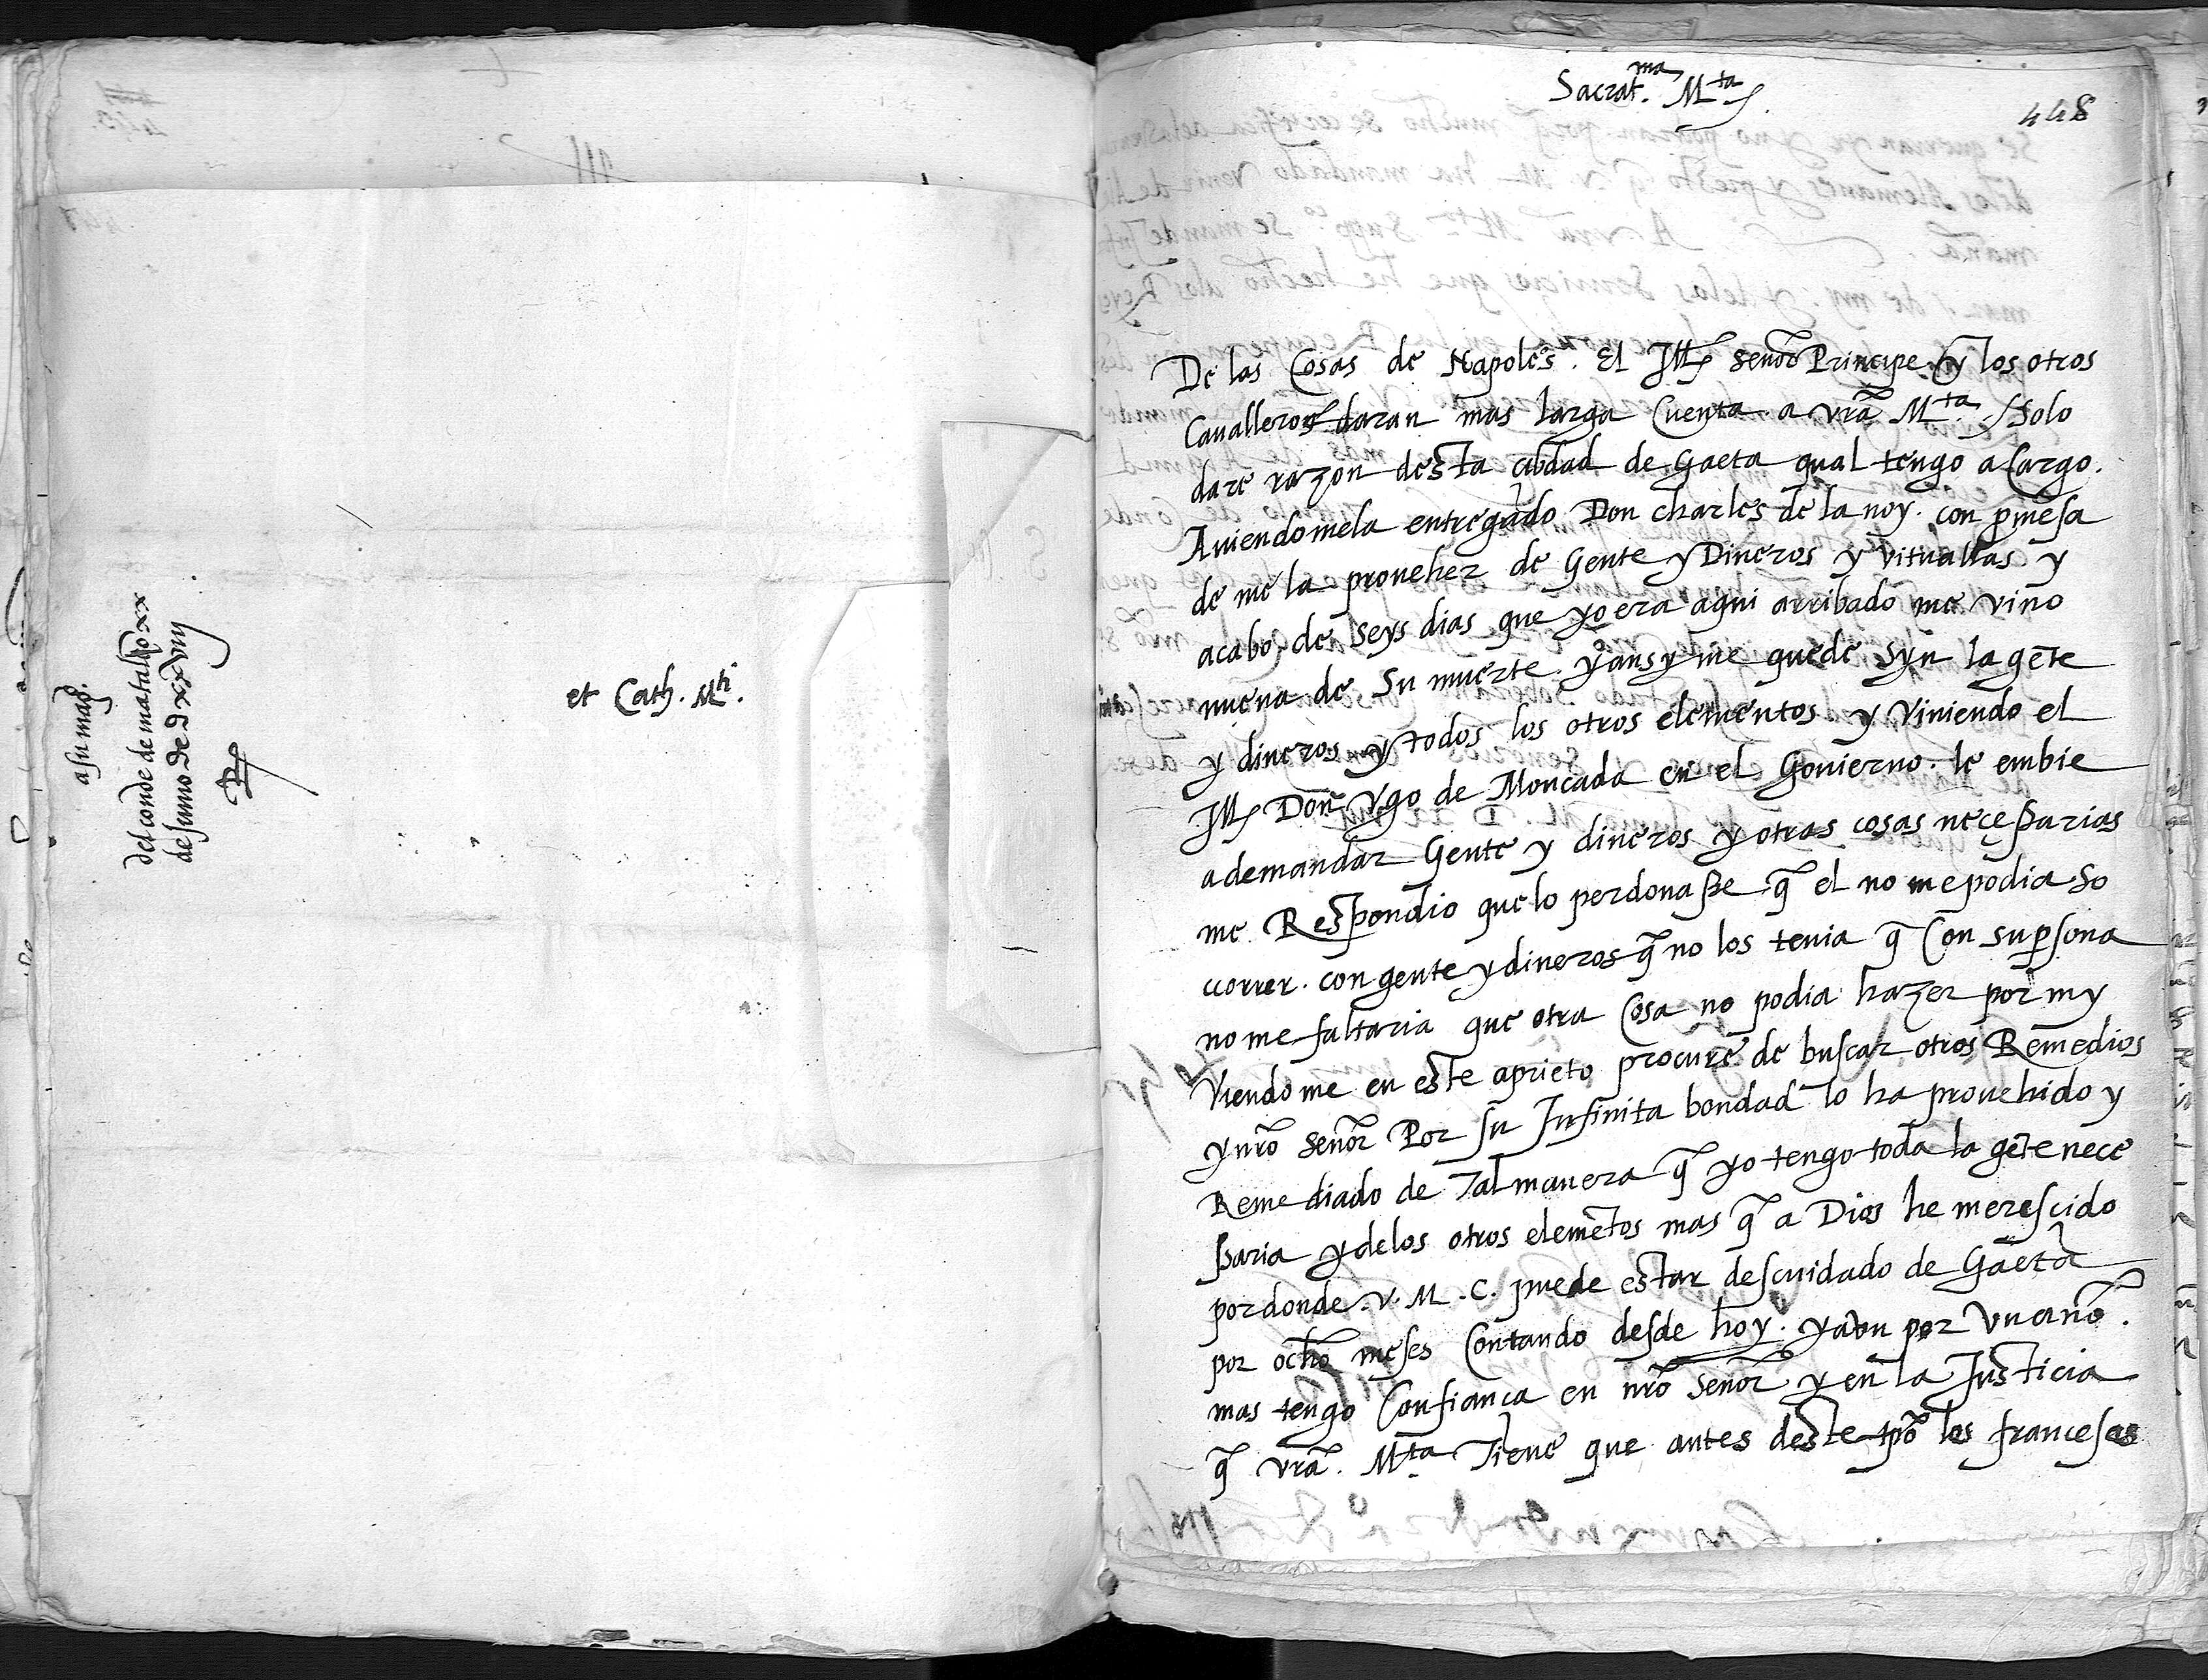 a su mag.
del conde de matalon xx
de junio de dxxviij
R
et Cath. Mti.
Sacrat.ma Mta
448
De las Cosas de Napoles. El Ill señor Principe y los otros
Caualleros daran mas larga Cuenta a vrã Mta / solo
dare razon desta cibdad de Gaeta qual tengo a Cargo.
Auiendomela entregado Don charles de la noy. con pmesa
de me la proueher de Gente y Dineros y Vituallas y
acabo de seys dias que yo era aqui arribado me vino
nueua de su muerte. y ansy me quede syn la gẽte
y dineros y todos los otros elementos y Viniendo el
Ill Don Vgo de Moncada en el Gouierno. le embie
a demandar Gente y dineros y otras cosas neçessarias
me Respondio que lo perdonasse q̃ el no me podia so
ccorrer. con gente y dineros q̃ no los tenia q̃ Con su psona
no me faltaria que otra Cosa no podia hazer por my
Viendome en este aprieto procure de buscar otros Remedios
y nrõ señor Por su Infinita bondad lo ha prouehido y
Remediado de Tal manera q̃ yo tengo toda la gẽte nece
ssaria y delos otros elemẽtos mas q̃ a Dios he merescido
por donde .v. M. C. puede estar descuidado de Gaeta
por ocho meses Contando desde hoy. y aun por Vn año.
mas tengo Confiança en nrõ señor y en la Justicia
q̃ vrã. Mta Tiene que antes deste tpõ los franceses